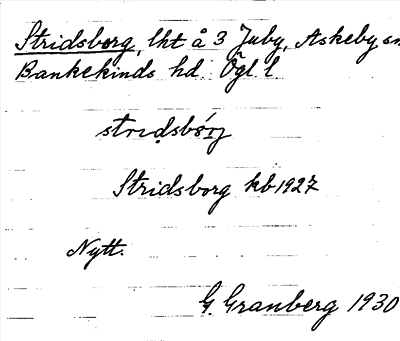 Stridsborg, lht å 3 Juby, Askeby sn
Bankekinds hd. Ögl. l
strịdsbórj
Stridsborg kb 1927
Nytt.
G. Granberg 1930